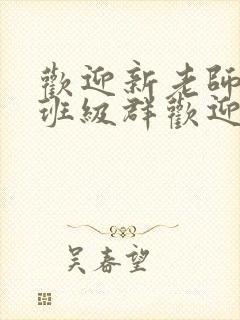 歡迎新老師
班級群歡迎
吴春望